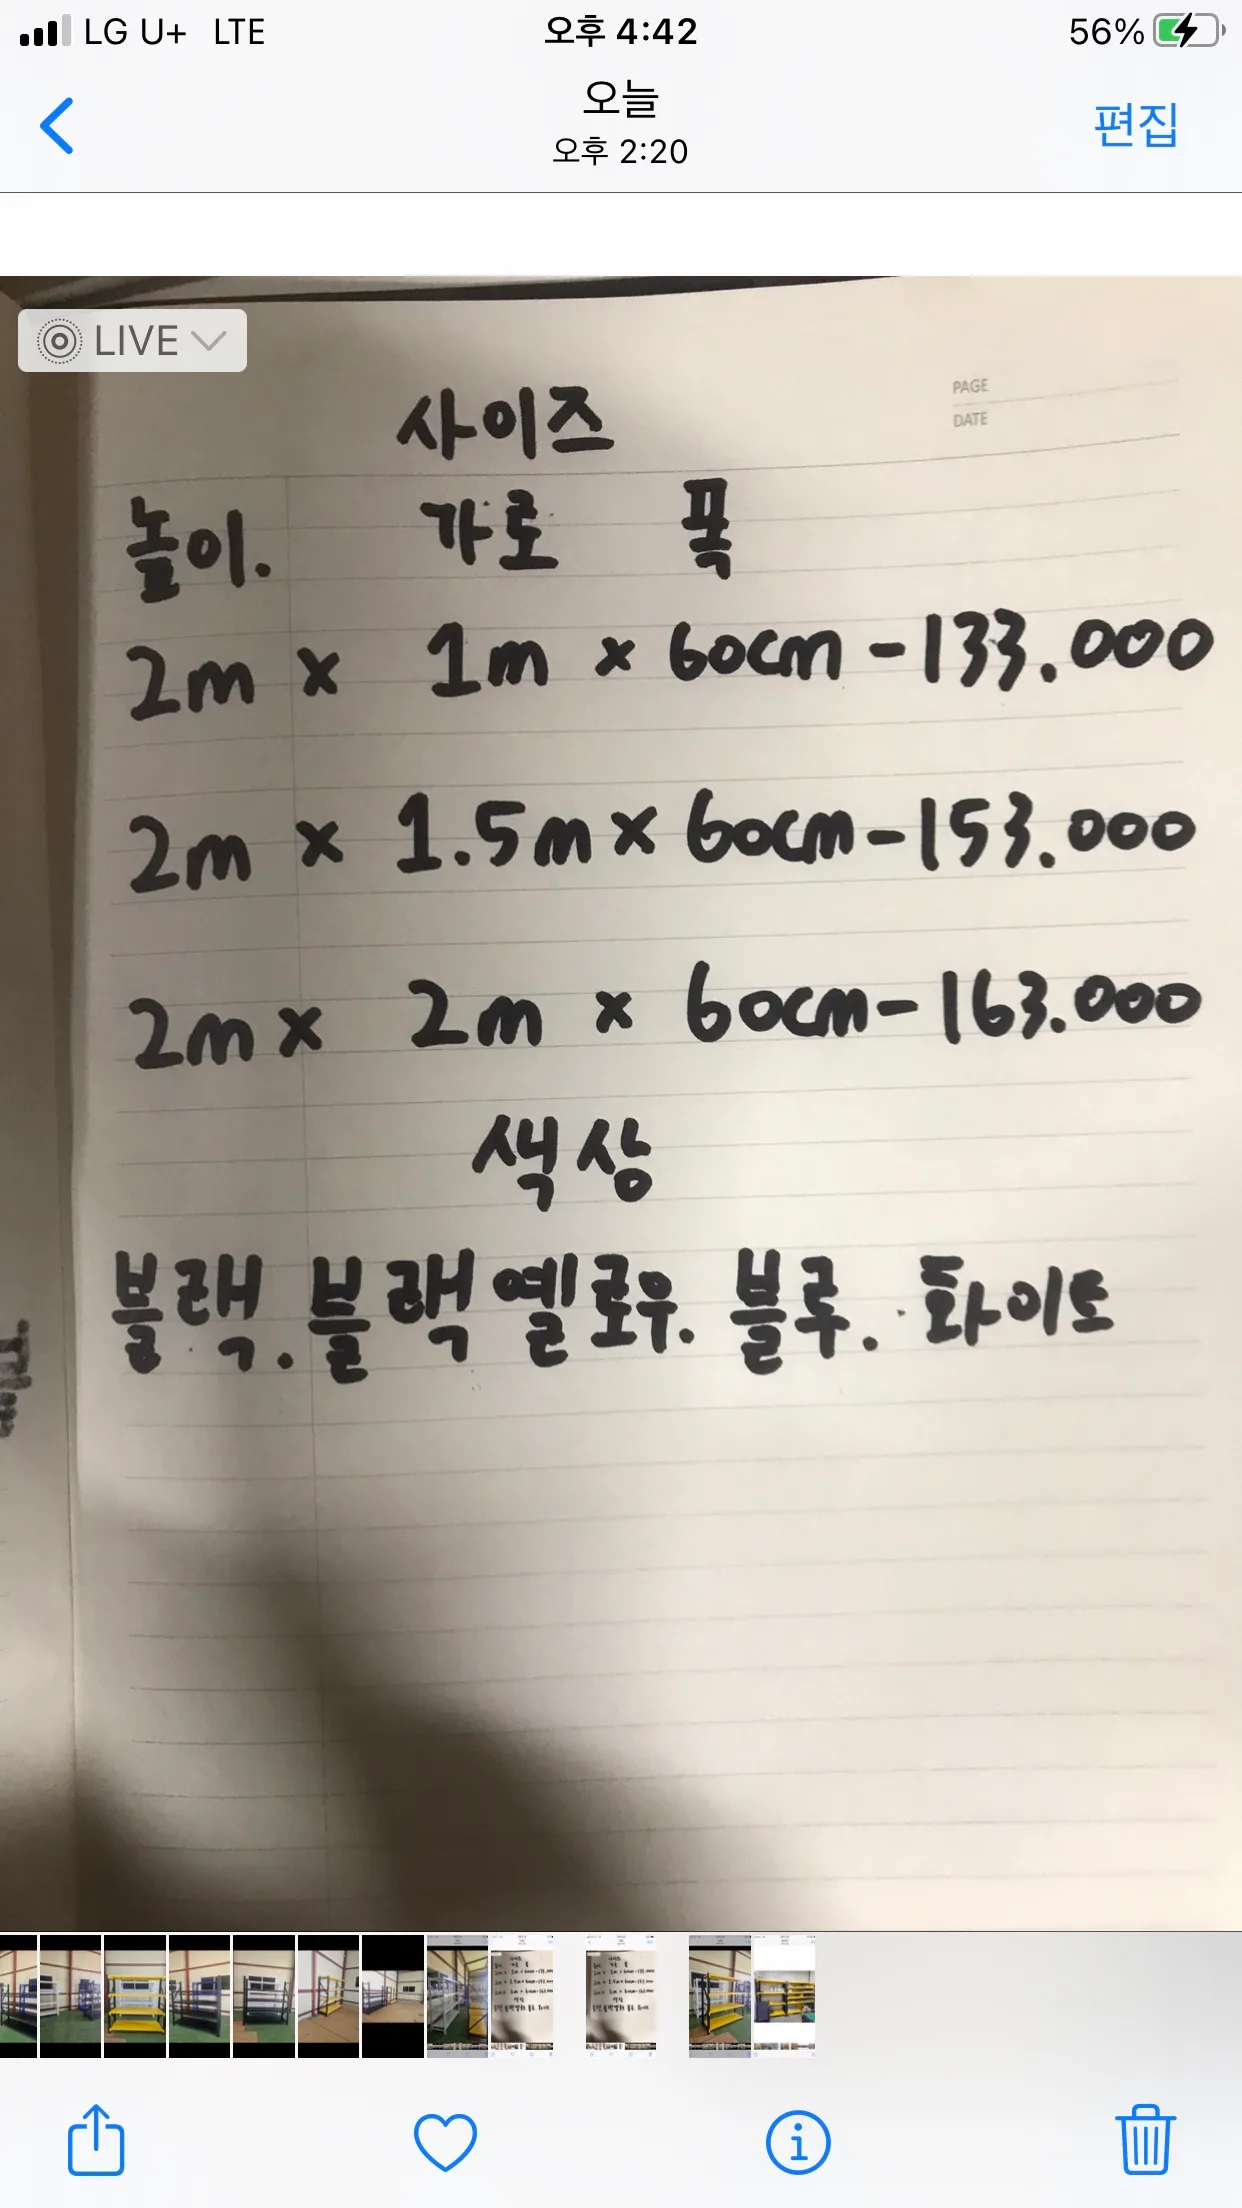 LG U+ LTE 오후 4:42 56%
오늘
오후 2:20
편집
LIVE
PAGE
DATE
사이즈
높이. 가로 폭
2m x 1m x 60cm - 133.000
2m x 1.5m x 60cm - 153.000
2m x 2m x 60cm - 163.000
색상
블랙. 블랙옐로우. 블루. 화이트